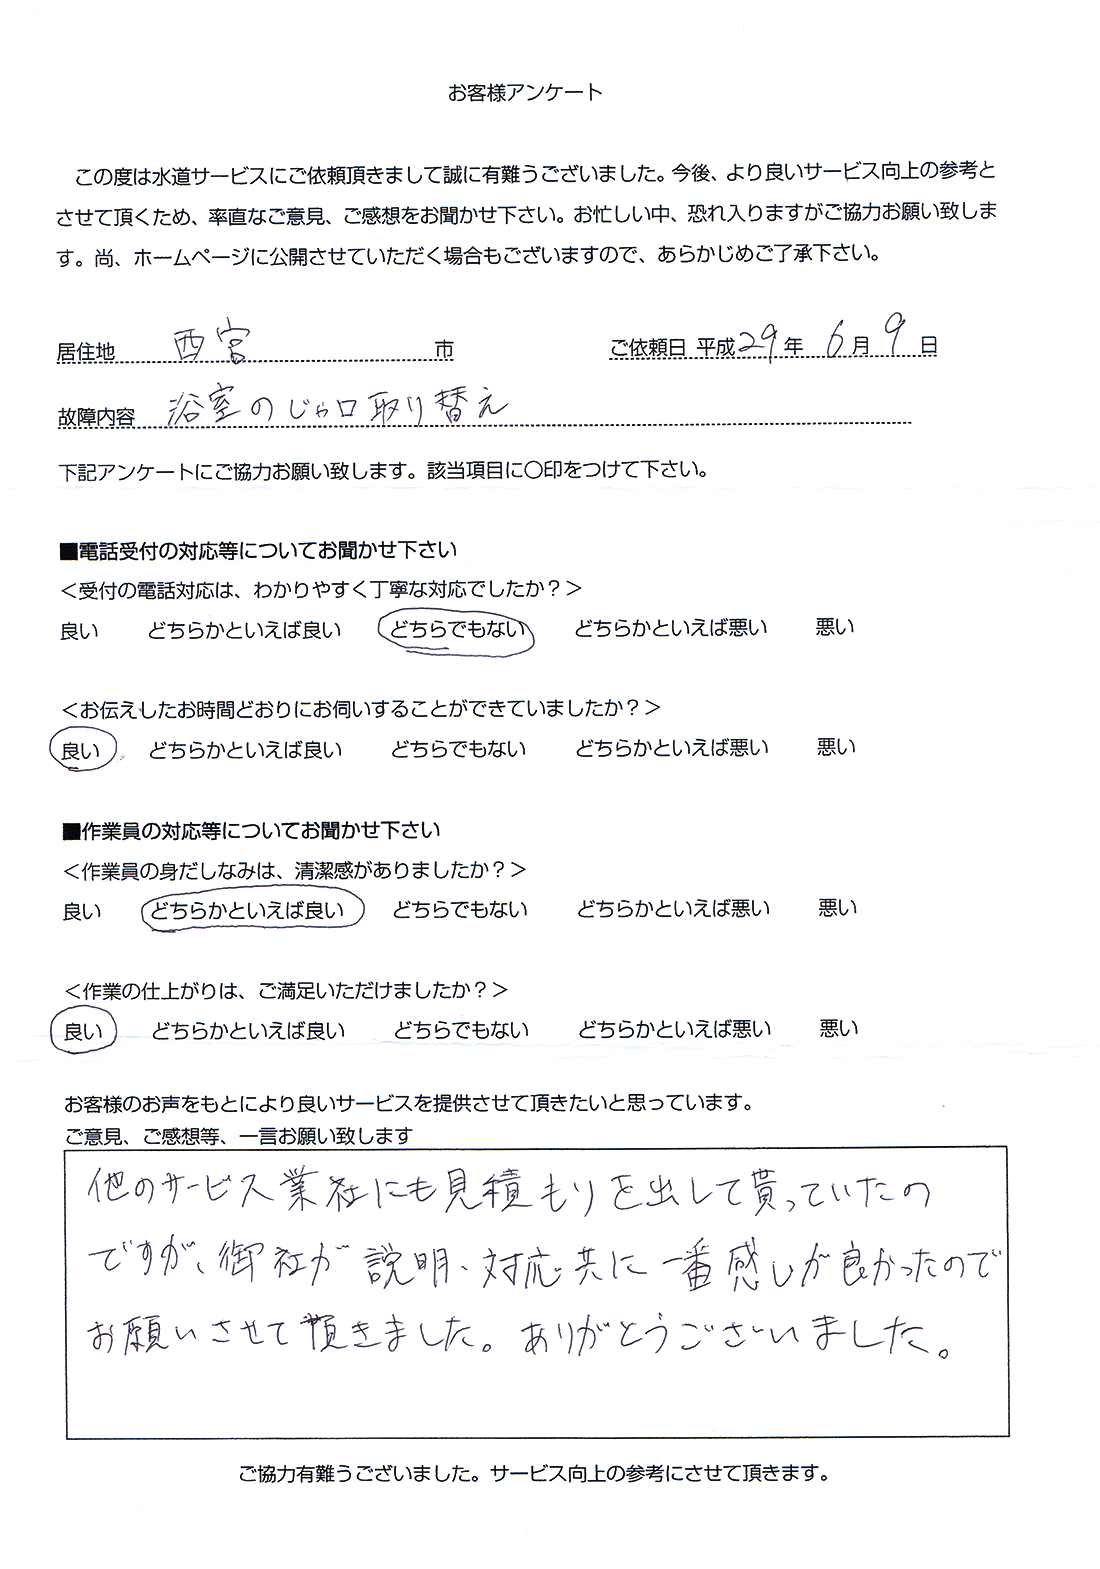 お客様アンケート
この度は水道サービスにご依頼頂きまして誠に有難うございました。今後、より良いサービス向上の参考と
させて頂くため、率直なご意見、ご感想をお聞かせ下さい。お忙しい中、恐れ入りますがご協力お願い致しま
す。尚、ホームページに公開させていただく場合もございますので、あらかじめご了承下さい。
居住地 西宮 市 ご依頼日 平成29年 6月 9日
故障内容 浴室のじゃ口取り替え
下記アンケートにご協力お願い致します。該当項目に〇印をつけて下さい。
■電話受付の対応等についてお聞かせ下さい
＜受付の電話対応は、わかりやすく丁寧な対応でしたか？＞
良い どちらかといえば良い どちらでもない どちらかといえば悪い 悪い
＜お伝えしたお時間どおりにお伺いすることができていましたか？＞
良い どちらかといえば良い どちらでもない どちらかといえば悪い 悪い
■作業員の対応等についてお聞かせ下さい
＜作業員の身だしなみは、清潔感がありましたか？＞
良い どちらかといえば良い どちらでもない どちらかといえば悪い 悪い
＜作業の仕上がりは、ご満足いただけましたか？＞
良い どちらかといえば良い どちらでもない どちらかといえば悪い 悪い
お客様のお声をもとにより良いサービスを提供させて頂きたいと思っています。
ご意見、ご感想等、一言お願い致します
他のサービス業社にも見積もりを出して貰っていたの
ですが、御社が説明、対応共に一番感じが良かったので
お願いさせて頂きました。ありがとうございました。
ご協力有難うございました。サービス向上の参考にさせて頂きます。